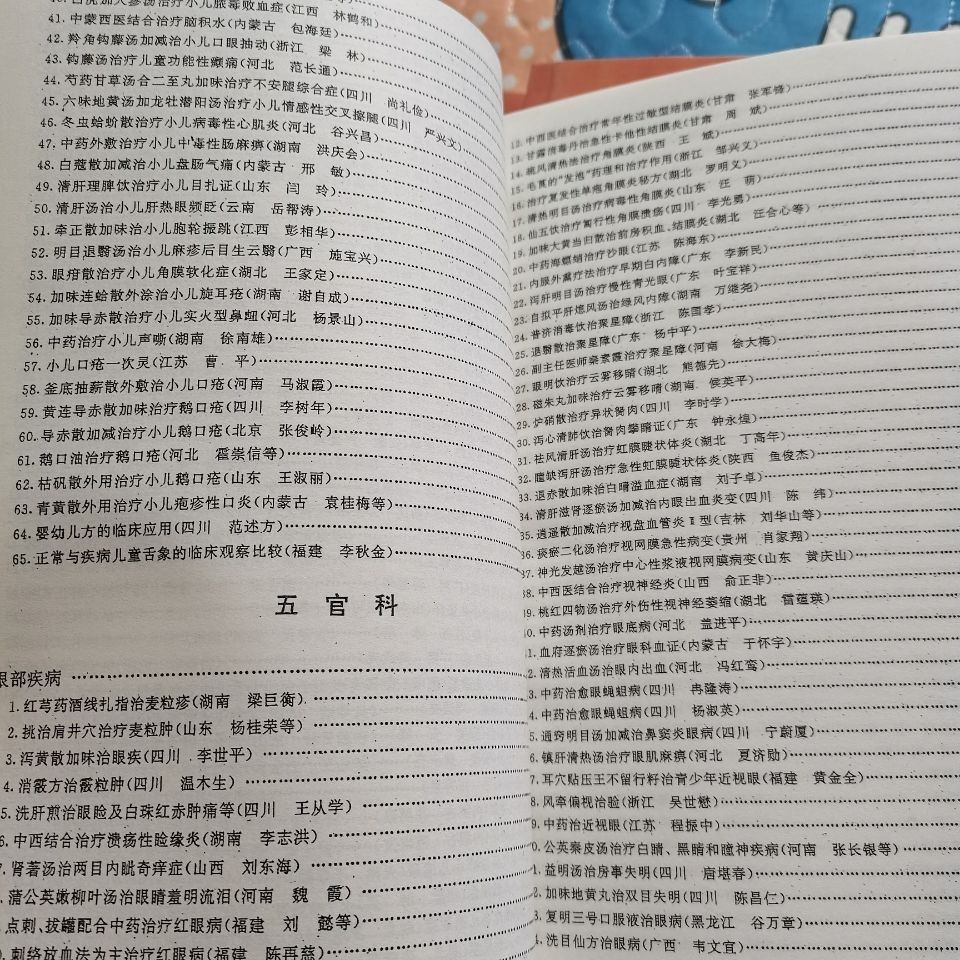 40. 白虎加人参汤治疗小儿脓毒败血症(江西 林鹤和)
41. 中蒙西医结合治疗脑积水(内蒙古 包海廷)
42. 羚角钩藤汤加减治小儿口眼抽动(浙江 梁 林)
43. 钩藤汤治疗儿童功能性癫痫(河北 范长通)
44. 芍药甘草汤合二至丸加味治疗不安腿综合症(四川 尚礼俭)
45. 六味地黄汤加龙牡潜阳汤治疗小儿情感性交叉擦腿(四川 严兴文)
46. 冬虫蛤蚧散治疗小儿病毒性心肌炎(河北 谷兴昌)
47. 中药外敷治疗小儿中毒性肠麻痹(湖南 洪庆会)
48. 白蔻散加减治小儿盘肠气痛(内蒙古 邢 敏)
49. 清肝理脾饮治疗小儿目扎证(山东 闫 玲)
50. 清肝汤治小儿肝热眼频眨(云南 岳帮涛)
51. 牵正散加味治小儿胞轮振跳(江西 彭相华)
52. 明目退翳汤治小儿麻疹后目生云翳(广西 施宝兴)
53. 眼疳散治疗小儿角膜软化症(湖北 王家定)
54. 加味连蛤散外涂治小儿旋耳疮(湖南 谢自成)
55. 加味导赤散治疗小儿实火型鼻衄(河北 杨景山)
56. 中药治疗小儿声嘶(湖南 徐南雄)
57. 小儿口疮一次灵(江苏 曹 平)
58. 釜底抽薪散外敷治小儿口疮(河南 马淑霞)
59. 黄连导赤散加味治疗鹅口疮(四川 李树年)
60. 导赤散加减治疗小儿鹅口疮(北京 张俊岭)
61. 鹅口油治疗鹅口疮(河北 霍崇信等)
62. 枯矾散外用治疗小儿鹅口疮(山东 王淑丽)
63. 青黄散外用治疗小儿疱疹性口炎(内蒙古 袁桂梅等)
64. 婴幼儿方的临床应用(四川 范述方)
65. 正常与疾病儿童舌象的临床观察比较(福建 李秋金)
五 官 科
眼部疾病
1. 红芎药酒线扎指治麦粒疹(湖南 梁巨衡)
2. 挑治肩井穴治疗麦粒肿(山东 杨桂荣等)
3. 泻黄散加味治眼疾(四川 李世平)
4. 消霰方治霰粒肿(四川 温木生)
5. 洗肝煎治眼睑及白珠红赤肿痛等(四川 王从学)
6. 中西结合治疗溃疡性睑缘炎(湖南 李志洪)
7. 肾著汤治两目内眦奇痒症(山西 刘东海)
. 蒲公英嫩柳叶汤治眼睛羞明流泪(河南 魏 霞)
. 点刺、拔罐配合中药治疗红眼病(福建 刘 懿等)
. 刺络放血法为主治疗红眼病(福建 陈再慈)
12. 中西医结合治疗常年性过敏型结膜炎(甘肃 张军锋)
13. 甘露消毒丹治急性卡他性结膜炎(甘肃 周 斌)
14. 疏风清热法治疗角膜炎(陕西 王 斌)
15. 毛茛的“发泡”药理和治疗作用(浙江 邹兴义)
16. 治疗复发性单疱角膜炎秘方(湖北 罗明义)
17. 清热明目汤治疗病毒性角膜炎(山东 汪 萌)
18. 仙五饮治疗暂行性角膜溃疡(四川 李光勇)
19. 加味大黄当归散治前房积血、结膜炎(湖北 汪合心等)
20. 中药海螵蛸治疗沙眼(江苏 陈海东)
21. 内服外熏疗法治疗早期白内障(广东 李新民)
22. 泻肝明目汤治疗慢性青光眼(广东 叶宝祥)
23. 自拟平肝熄风汤治绿风内障(湖南 万继尧)
24. 普济消毒饮治聚星障(浙江 陈国孝)
25. 退翳散治聚星障(广东 杨中平)
26. 副主任医师栾素霞治疗聚星障(河南 徐大梅)
27. 眼明饮治疗云雾移睛(湖北 熊德先)
28. 磁朱丸加味治疗云雾移睛(湖南 侯英平)
29. 炉硝散治疗异状胬肉(四川 李时学)
30. 泻心清肺饮治胬肉攀睛证(广东 钟永煌)
31. 祛风清肝汤治疗虹膜睫状体炎(湖北 丁高年)
32. 膣缺泻肝汤治疗急性虹膜睫状体炎(陕西 鱼俊杰)
33. 退赤散加味治白睛溢血症(湖南 刘子卓)
34. 清肝滋肾逐瘀汤加减治内眼出血炎变(四川 陈 纬)
35. 逍遥散加减治疗视盘血管炎Ⅱ型(吉林 刘华山等)
36. 痰瘀二化汤治疗视网膜急性病变(贵州 肖家翔)
37. 神光发越汤治疗中心性浆液视网膜病变(山东 黄庆山)
38. 中西医结合治疗视神经炎(山西 俞正非)
39. 桃红四物汤治疗外伤性视神经萎缩(湖北 雷蕴瑛)
40. 中药汤剂治疗眼底病(河北 盖进平)
1. 血府逐瘀汤治疗眼科血证(内蒙古 于怀宇)
2. 清热活血汤治眼内出血(河北 冯红鸾)
3. 中药治愈眼蝇蛆病(四川 冉隆涛)
4. 中药治愈眼蝇蛆病(四川 杨淑英)
5. 通窍明目汤加减治鼻窦炎眼病(四川 宁蔚厦)
6. 镇肝清热汤治疗眼肌麻痹(河北 夏济勋)
7. 耳穴贴压王不留行籽治青少年近视眼(福建 黄金全)
8. 风牵偏视治验(浙江 吴世懋)
9. 中药治近视眼(江苏 程振中)
0. 公英秦皮汤治疗白睛、黑睛和瞳神疾病(河南 张长银等)
1. 益明汤治房事失明(四川 唐堪春)
2. 加味地黄丸治双目失明(四川 陈昌仁)
3. 复明三号口服液治眼病(黑龙江 谷万章)
4. 洗目仙方治眼病(广西 韦文宜)